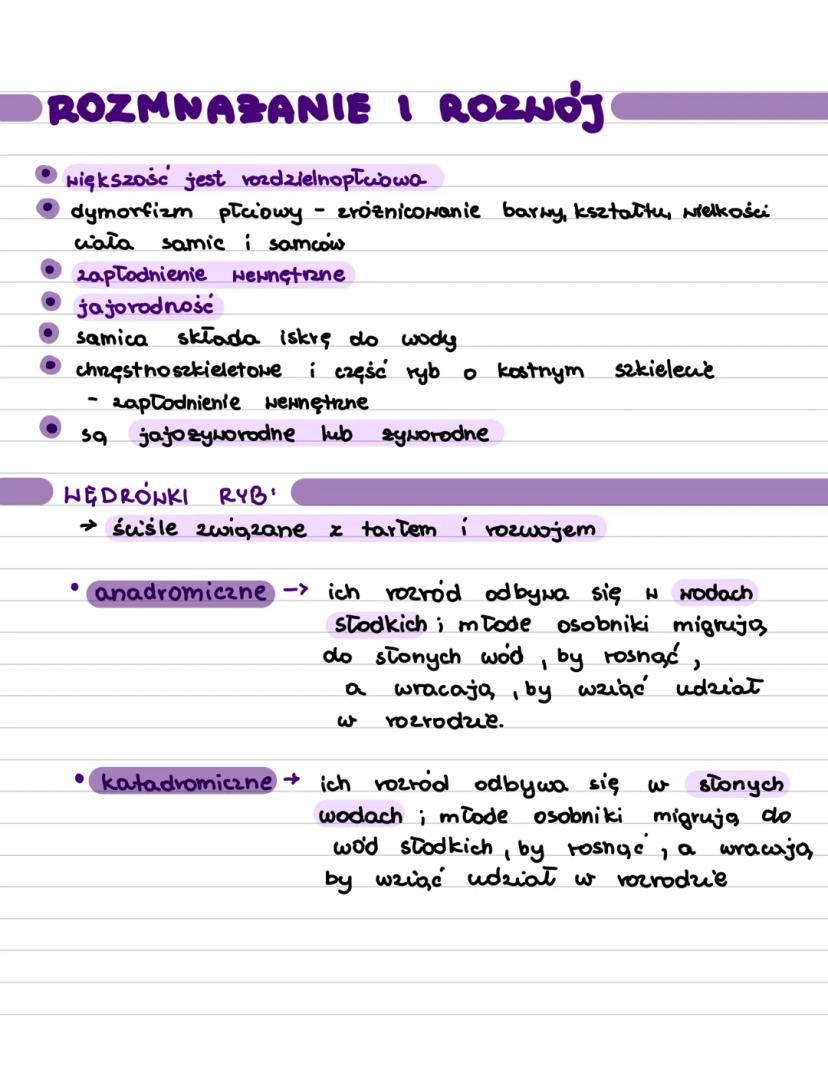 ROZMNAŻANIE I ROZWÓJ
większość jest rozdzielnopłciowa
dymorfizm płciowy - zróżnicowanie barwy, kształtu, wielkości
ciała samic i samców
zapłodnienie wewnętrzne
jajorodność
samica składa iskrę do wody
chrzęstnoszkieletowe i część ryb o kostnym szkielecie
- zapłodnienie wewnętrzne
są jajożyworodne lub żyworodne
WĘDRÓWKI RYB:
→ ściśle związane z tarłem i rozwojem
• anadromiczne → ich rozród odbywa się w wodach
słodkich ; młode osobniki migrują
do słonych wód , by rosnąć ,
a wracają , by wziąć udział
w rozrodzie.
• katadromiczne → ich rozród odbywa się w słonych
wodach ; młode osobniki migrują do
wód słodkich , by rosnąć , a wracają,
by wziąć udział w rozrodzie